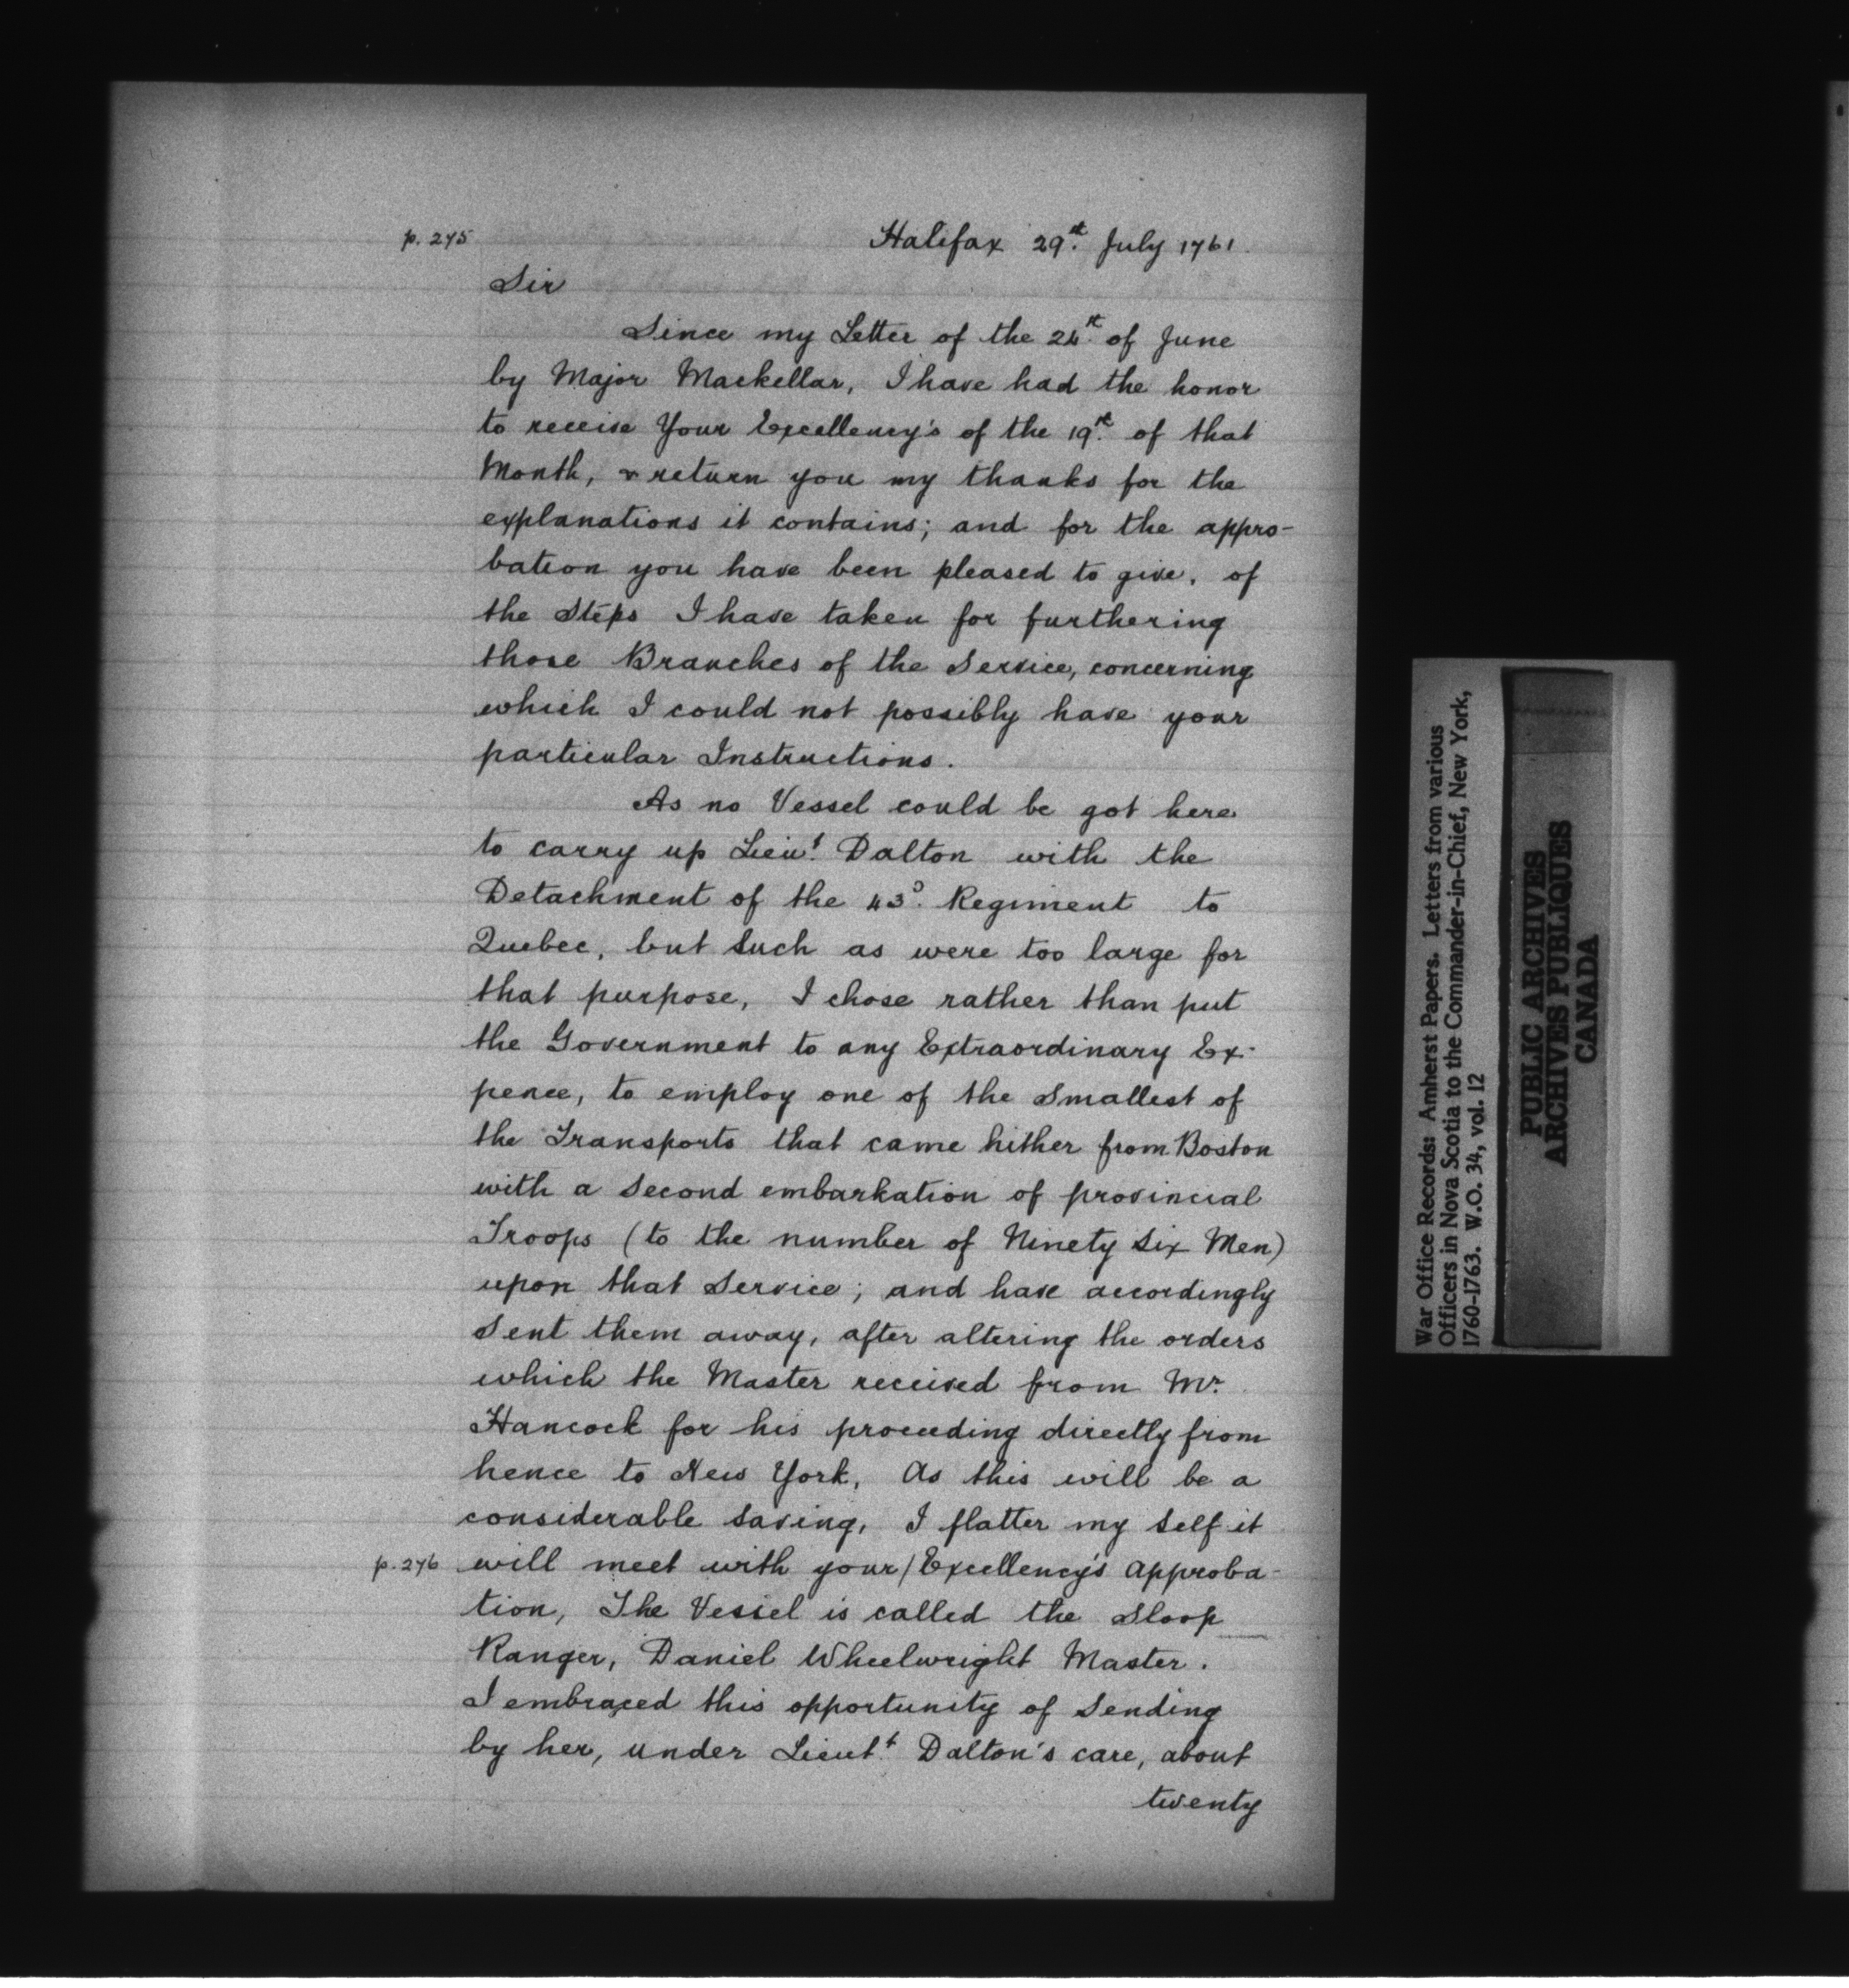 p. 275
Halifax 29th. July 1761.
Sir
Since my Letter of the 24th. of June
by Major Mackellar, I have had the honor
to receive Your Excellency's of the 19th. of that
Month, & return you my thanks for the
explanations it contains; and for the appro-
bation you have been pleased to give, of
the Steps I have taken for furthering
those Branches of the Service, concerning
which I could not possibly have your
particular Instructions.
As no Vessel could be got here
to carry up Lieut. Dalton with the
Detachment of the 43d. Regiment to
Quebec, but Such as were too large for
that purpose, I chose rather than put
the Government to any Extraordinary Ex-
pence, to employ one of the Smallest of
the Transports that came hither from Boston
with a Second embarkation of provincial
Troops (to the number of Ninety Six Men)
upon that Service; and have accordingly
Sent them away, after altering the orders
which the Master received from Mr.
Hancock for his proceeding directly from
hence to New York, As this will be a
considerable Saving, I flatter my Self it
p. 276 will meet with your/Excellency's Approba-
tion, The Vessel is called the Sloop
Ranger, Daniel Wheelwright Master.
I embraced this opportunity of Sending
by her, under Lieutt. Dalton's care, about
twenty
War Office Records: Amherst Papers. Letters from various
Officers in Nova Scotia to the Commander-in-Chief, New York,
1760-1763. W.O. 34, vol. 12
PUBLIC ARCHIVES
ARCHIVES PUBLIQUES
CANADA